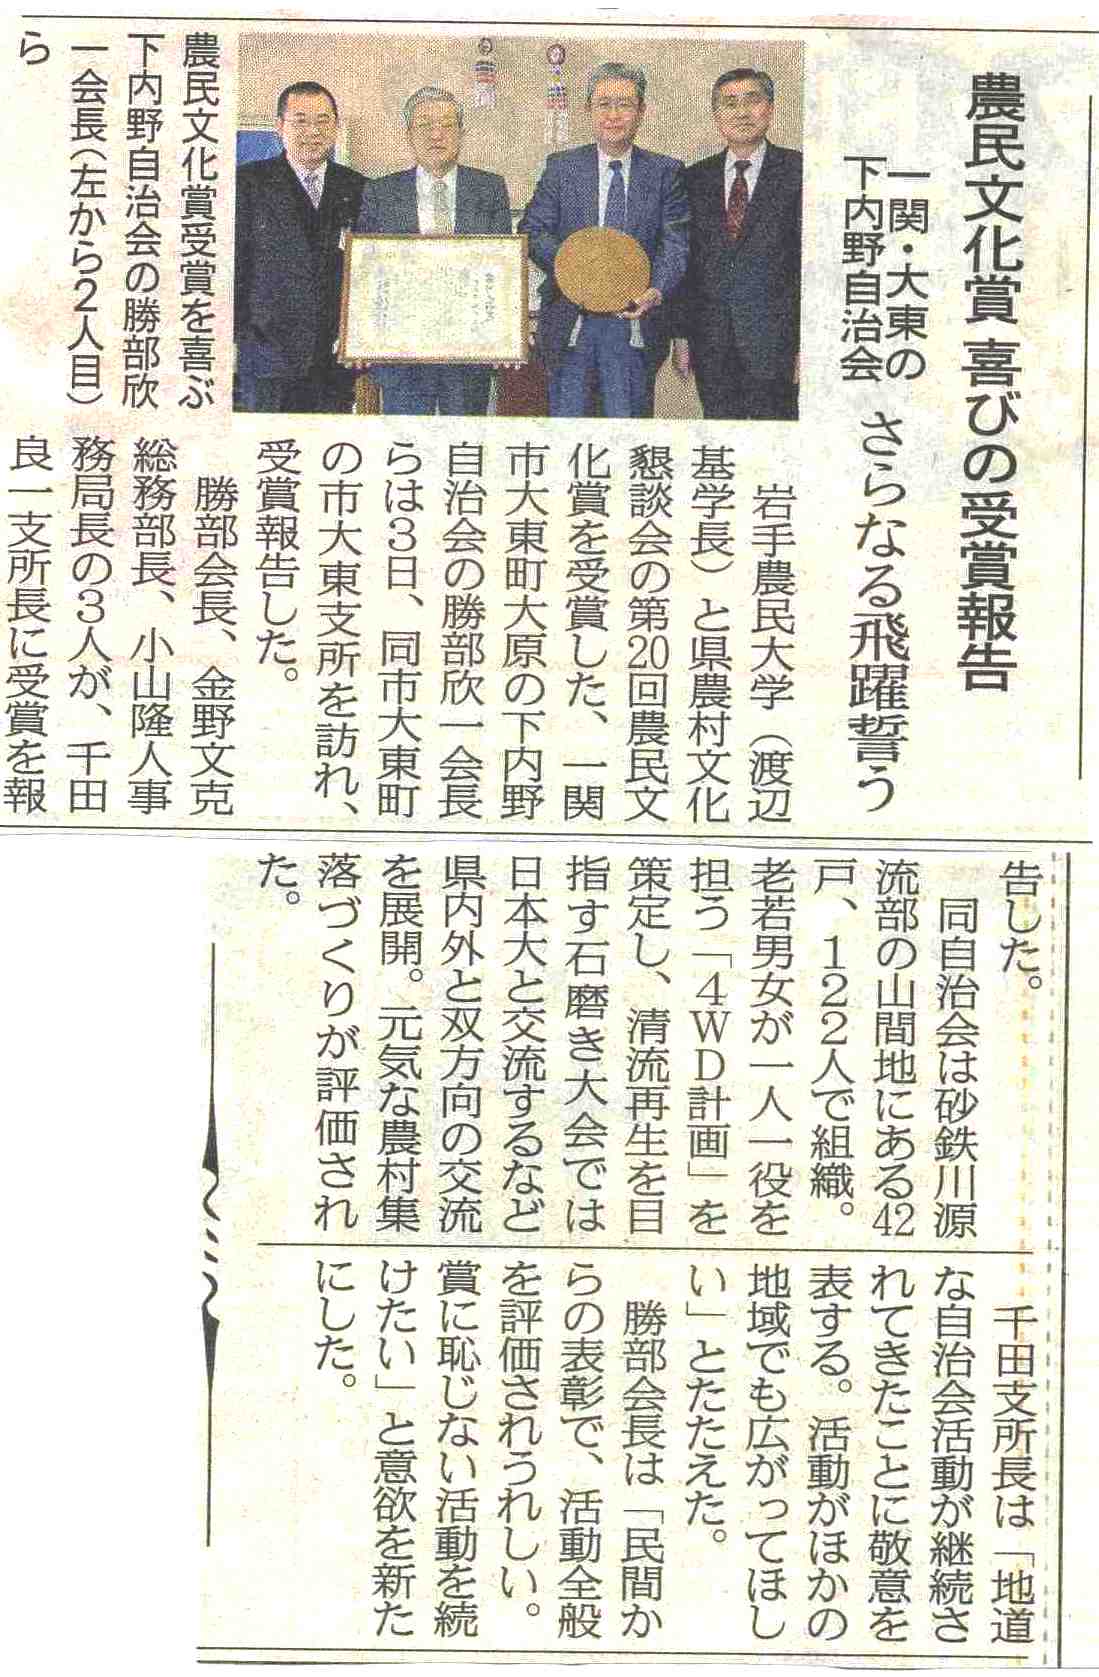 農民文化賞 喜びの受賞報告
一関・大東の
下内野自治会
さらなる飛躍誓う
農民文化賞受賞を喜ぶ
下内野自治会の勝部欣
一会長(左から2人目)
ら
岩手農民大学(渡辺
基学長)と県農村文化
懇談会の第20回農民文
化賞を受賞した、一関
市大東町大原の下内野
自治会の勝部欣一会長
らは3日、同市大東町
の市大東支所を訪れ、
受賞報告した。
勝部会長、金野文克
総務部長、小山隆人事
務局長の3人が、千田
良一支所長に受賞を報
告した。
同自治会は砂鉄川源
流部の山間地にある42
戸、122人で組織。
老若男女が一人一役を
担う「4WD計画」を
策定し、清流再生を目
指す石磨き大会では
日本大と交流するなど
県内外と双方向の交流
を展開。元気な農村集
落づくりが評価され
た。
千田支所長は「地道
な自治会活動が継続さ
れてきたことに敬意を
表する。活動がほかの
地域でも広がってほし
い」とたたえた。
勝部会長は「民間か
らの表彰で、活動全般
を評価されうれしい。
賞に恥じない活動を続
けたい」と意欲を新た
にした。